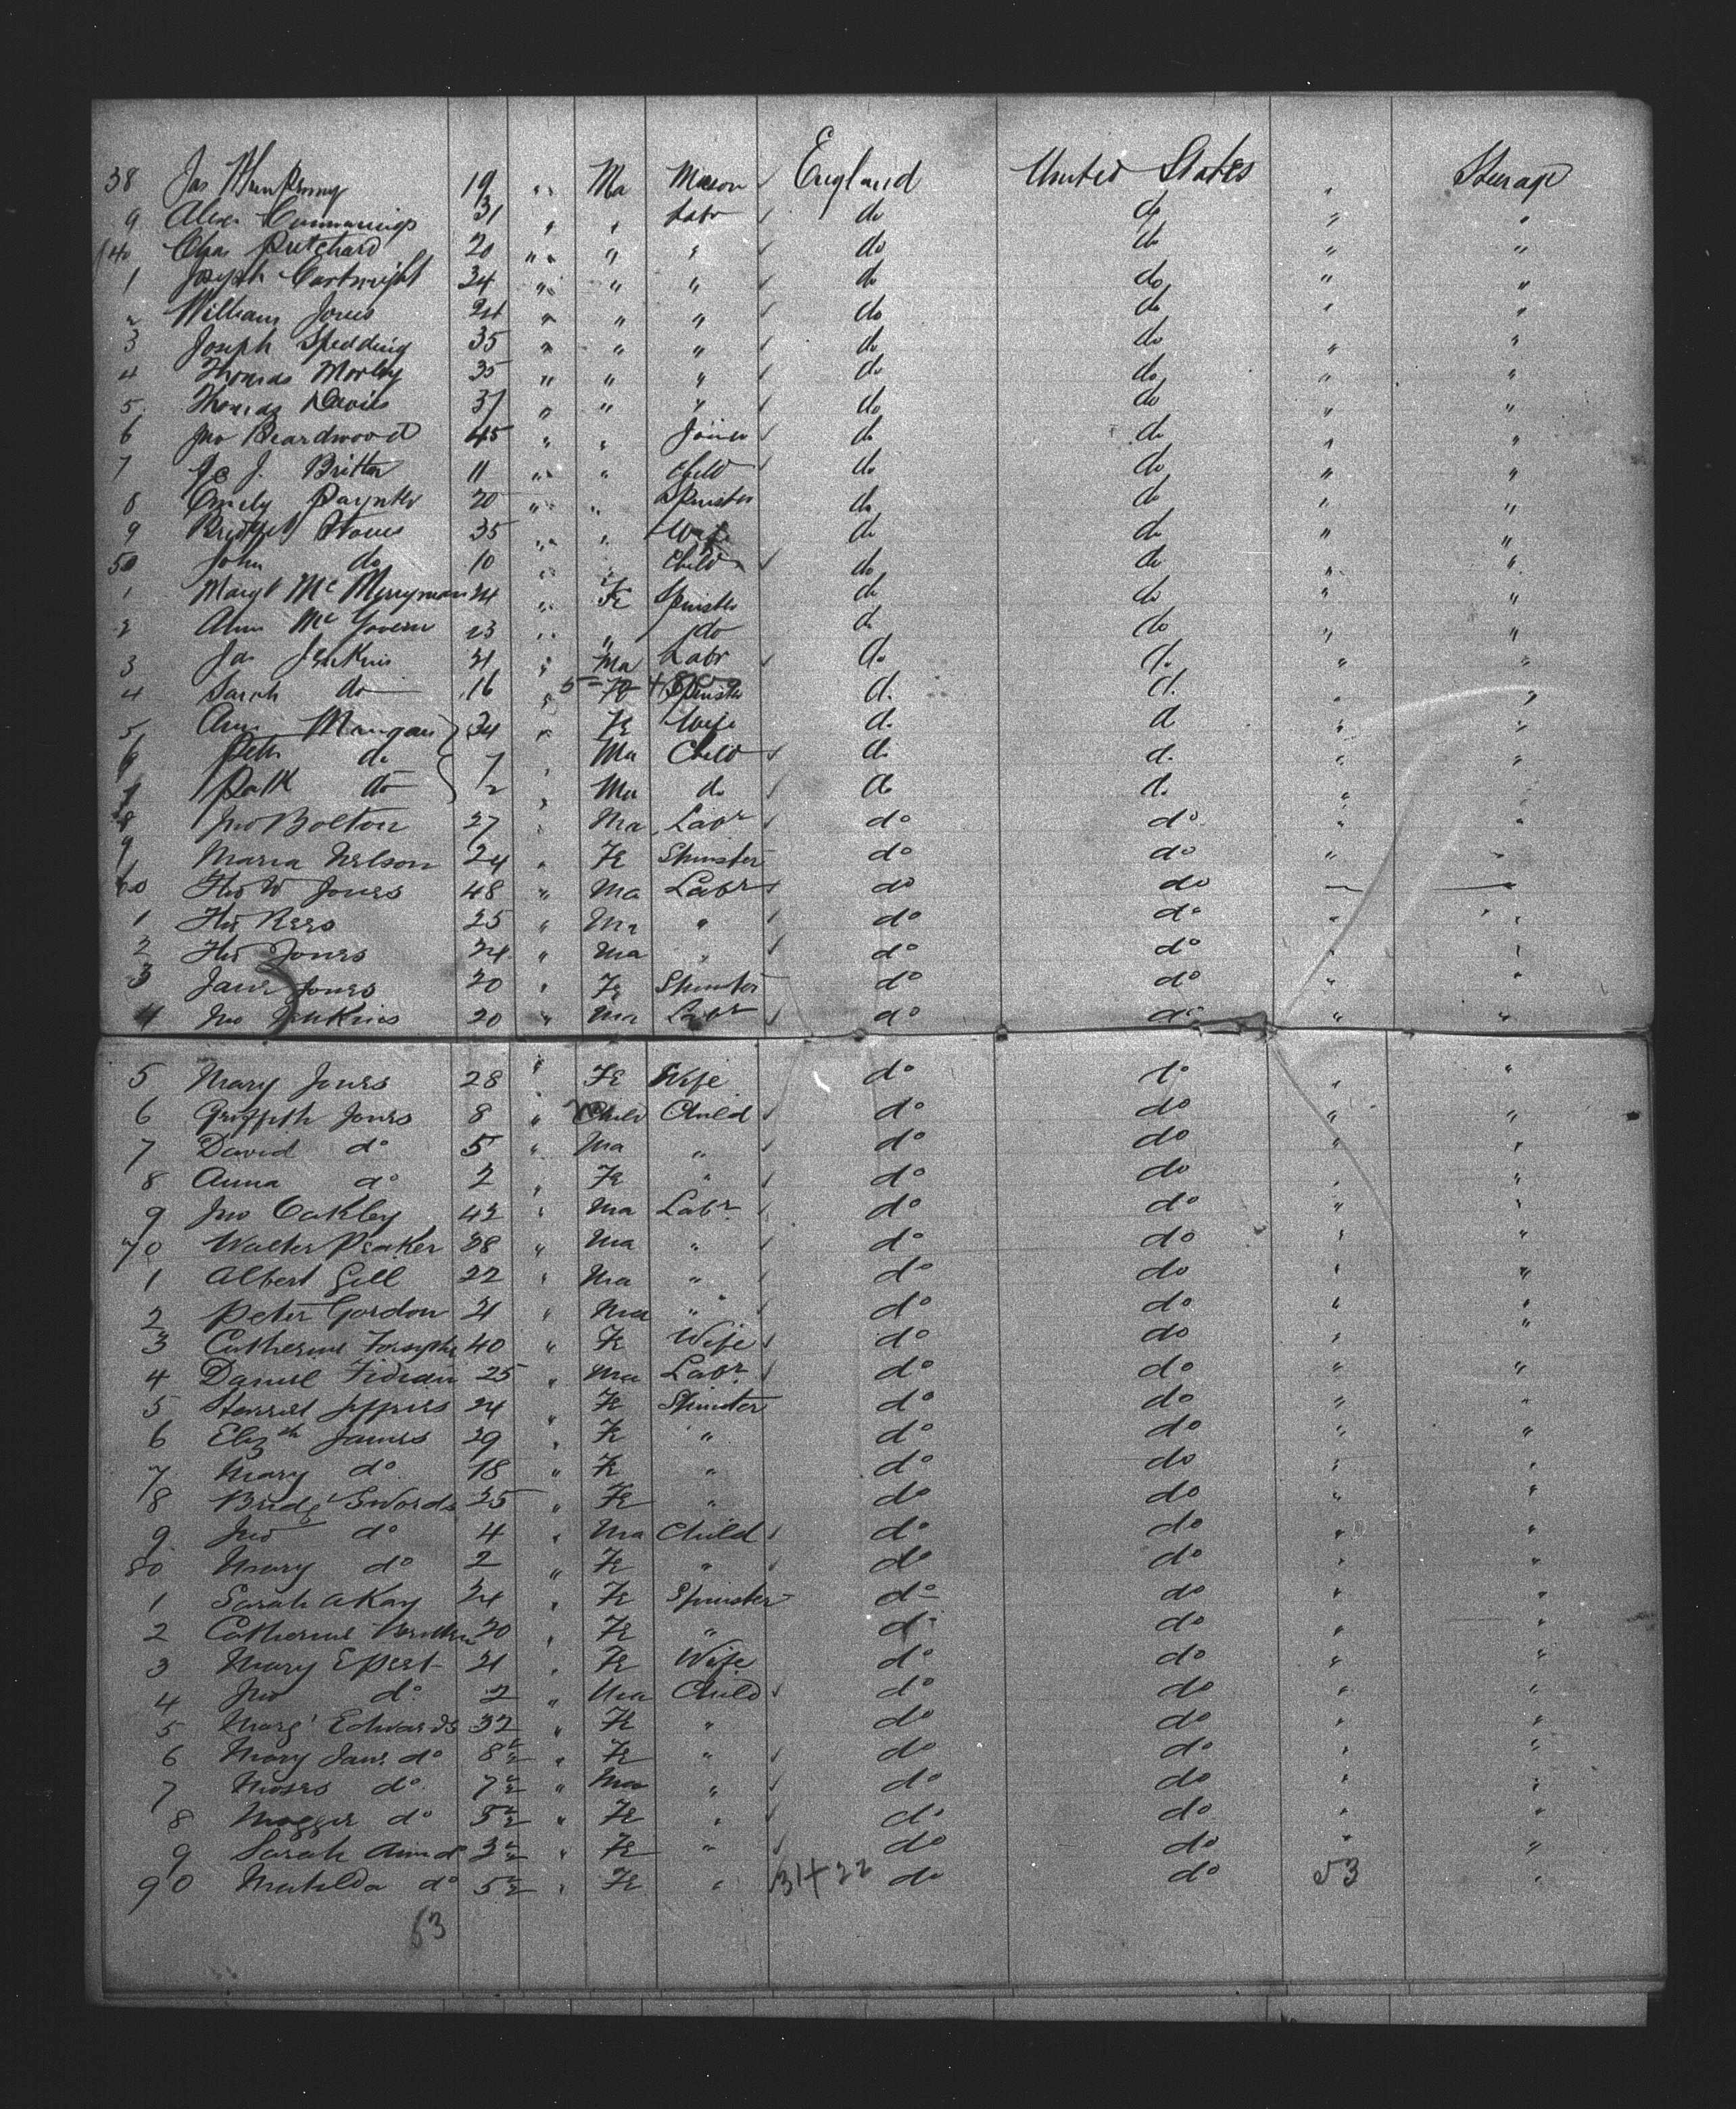 38 Jas 19 " Ma Mason ✓ England United States " Steerage
9 Alex Cummings 31 " " Labr ✓ do do " "
140 Chas Pritchard 20 " " " ✓ do do " "
1 Joseph Cartwright 34 " " " ✓ do do " "
2 William Jones 24 " " " ✓ do do " "
3 Joseph Spedding 35 " " " ✓ do do " "
4 Thomas Morley 35 " " " ✓ do do " "
5 Thomas Davies 37 " " " ✓ do do " "
6 Jno Beardwood 45 " " Joiner ✓ do do " "
7 J. Britton 11 " " Child ✓ do do " "
8 Emily Paynter 20 " " Spinster do do " "
9 35 " " Wife do do " "
50 John do 10 " " Child ✓ do do " "
1 Margt Mc Merryman 24 " Fe Spinster do do " "
2 Ann Mc Govern 23 " " do do do " "
3 Jas Jenkins 21 " Ma Labr ✓ do do " "
4 Sarah do 16 " Fe Spinster do do " "
5 Ann Mangan 34 " Fe Wife do do " "
6 Petr do 7 " Ma Child ✓ do do " "
7 Patk do 2 " Ma do ✓ do do " "
8 Jno Bolton 27 " Ma Labr ✓ do do " "
9 Maria Nelson 24 " Fe Spinster do do " "
60 Tho W Jones 48 " Ma Labr ✓ do do " "
1 Thos Rees 25 " Ma " ✓ do do " "
2 Thos Jones 24 " Ma " ✓ do do " "
3 Jane Jones 20 " Fe Spinster do do " "
4 Jno Jenkins 20 " Ma Labr ✓ do do " "
5 Mary Jones 28 " Fe Wife do do " "
6 Griffith Jones 8 " Child Child ✓ do do " "
7 David do 5 " Ma " ✓ do do " "
8 Anna do 2 " Fe " ✓ do do " "
9 Jno Oakley 42 " Ma Labr ✓ do do " "
70 Walter Peaker 28 " Ma " ✓ do do " "
1 Albert Gill 22 " Ma " ✓ do do " "
2 Peter Gordon 21 " Ma " ✓ do do " "
3 Catherine Forsythe 40 " Fe Wife ✓ do do " "
4 Daniel 25 " Ma Labr ✓ do do " "
5 Jeffries 24 " Fe Spinster do do " "
6 Elizth James 29 " Fe " do do " "
7 Mary do 18 " Fe " do do " "
8 Bridgt Swords 25 " Fe " do do " "
9 Jno do 4 " Ma Child ✓ do do " "
80 Mary do 2 " Fe " ✓ do do " "
1 Sarah A Kay 24 " Fe Spinster do do " "
2 Catherine 20 " Fe " do do " "
3 Mary 21 " Fe Wife do do " "
4 Jno do 2 " Ma Child ✓ do do " "
5 Margt Edwards 32 " Fe " do do " "
6 Mary Jane do 8½ " Fe " ✓ do do " "
7 Moses do 7½ " Ma " ✓ do do " "
8 Maggie do 5½ " Fe " ✓ do do " "
9 Sarah Ann do 3½ " Fe " ✓ do do " "
90 Matilda do 5½ " Fe " 31+22 do do 53 "
53